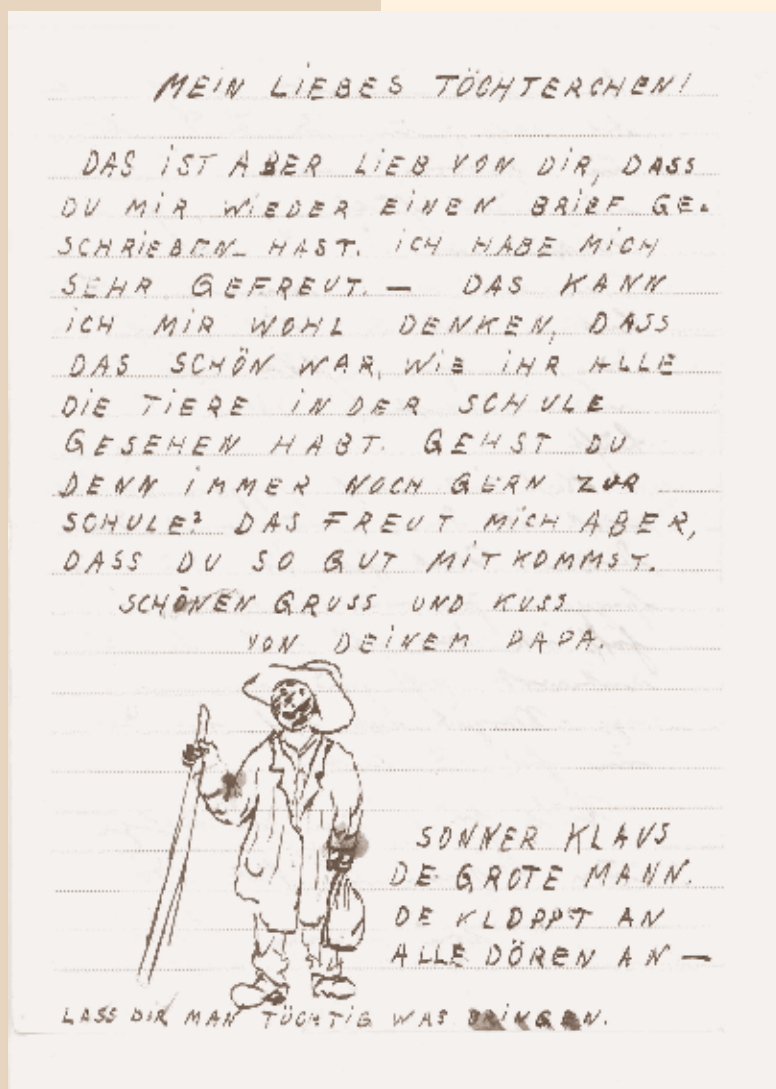 MEIN LIEBES TÖCHTERCHEN!
DAS IST ABER LIEB VON DIR, DASS
DU MIR WIEDER EINEN BRIEF GE-
SCHRIEBEN HAST. ICH HABE MICH
SEHR GEFREUT. — DAS KANN
ICH MIR WOHL DENKEN, DASS
DAS SCHÖN WAR, WIE IHR ALLE
DIE TIERE IN DER SCHULE
GESEHEN HABT. GEHST DU
DENN IMMER NOCH GERN ZUR
SCHULE? DAS FREUT MICH ABER,
DASS DU SO GUT MITKOMMST.
SCHÖNEN GRUSS UND KUSS
VON DEINEM PAPA.
SONNER KLAUS
DE GROTE MANN.
DE KLOPPT AN
ALLE DÖREN AN —
LASS DIR MAN TÜCHTIG WAS BRINGEN.